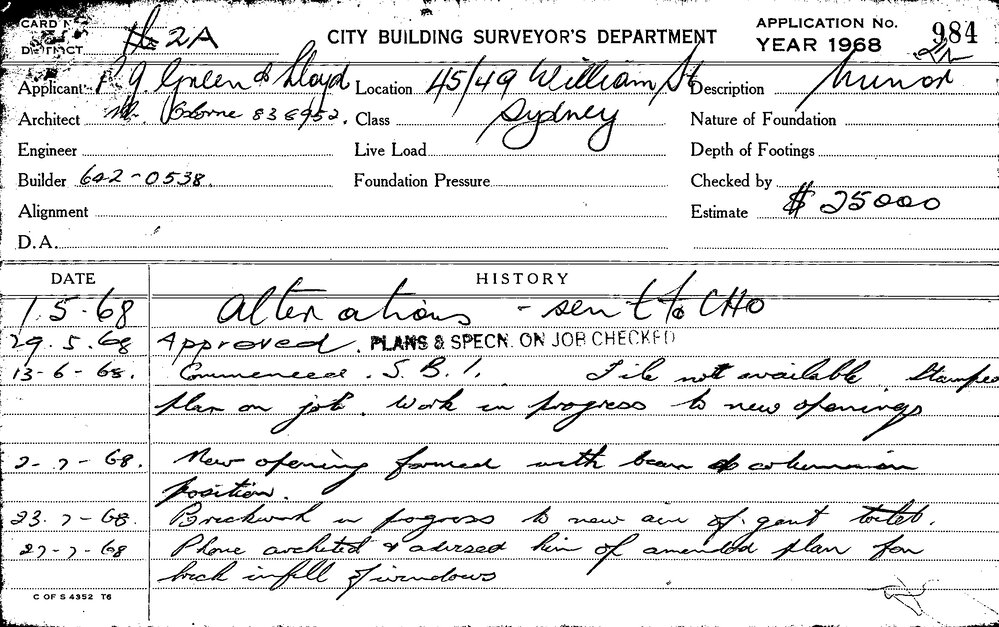 CARD No. 2A
DISTRICT
CITY BUILDING SURVEYOR'S DEPARTMENT
APPLICATION No. 984
YEAR 1968
Applicant P G. Green & Lloyd Location 45/49 William St Description Minor
Architect Mr. Osborne 836952. Class Sydney Nature of Foundation
Engineer Live Load Depth of Footings
Builder 642-0538. Foundation Pressure Checked by
Alignment Estimate $ 25000
D.A.
DATE HISTORY
1.5.68 Alterations - sent to CHO
29.5.68 Approved. PLANS & SPECN. ON JOB CHECKED
13-6-68. Commenced. S.B.I. File not available. Stamped
plan on job. Work in progress to new openings
2-7-68. New opening formed with beam & column in
position.
23.7-68. Brickwork in progress to new air of gent toilet.
27-7-68 Phone architect & advised him of amended plan for
brick infill of windows
C OF S 4352 T6